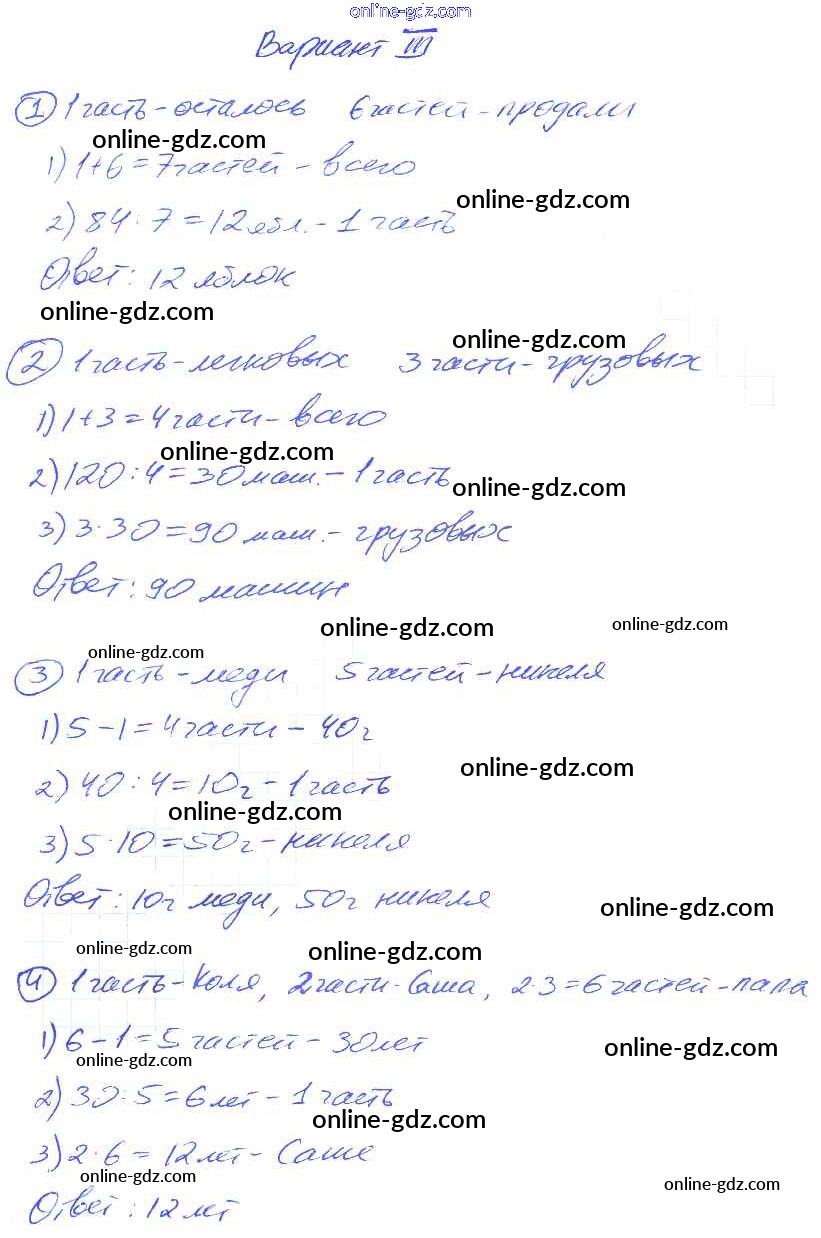 online-gdz.com
Вариант III
1 1 часть - осталось 6 частей - продали
online-gdz.com
1) 1+6=7 частей - всего
online-gdz.com
2) 84:7=12 ябл. - 1 часть
Ответ: 12 яблок
online-gdz.com
online-gdz.com
2 1 часть - легковых 3 части - грузовых
1) 1+3=4 части - всего
online-gdz.com
2) 120:4=30 маш. - 1 часть
online-gdz.com
3) 3·30=90 маш. - грузовых
Ответ: 90 машин
online-gdz.com online-gdz.com
online-gdz.com
3 1 часть - меди 5 частей - никеля
1) 5-1=4 части - 40 г
online-gdz.com
2) 40:4=10 г - 1 часть
online-gdz.com
3) 5·10=50 г - никеля
Ответ: 10 г меди, 50 г никеля
online-gdz.com
online-gdz.com online-gdz.com
4 1 часть - Коля, 2 части - Саша, 2·3=6 частей - папа
1) 6-1=5 частей - 30 лет
online-gdz.com
online-gdz.com
2) 30:5=6 лет - 1 часть
online-gdz.com
3) 2·6=12 лет - Саше
online-gdz.com online-gdz.com
Ответ: 12 лет